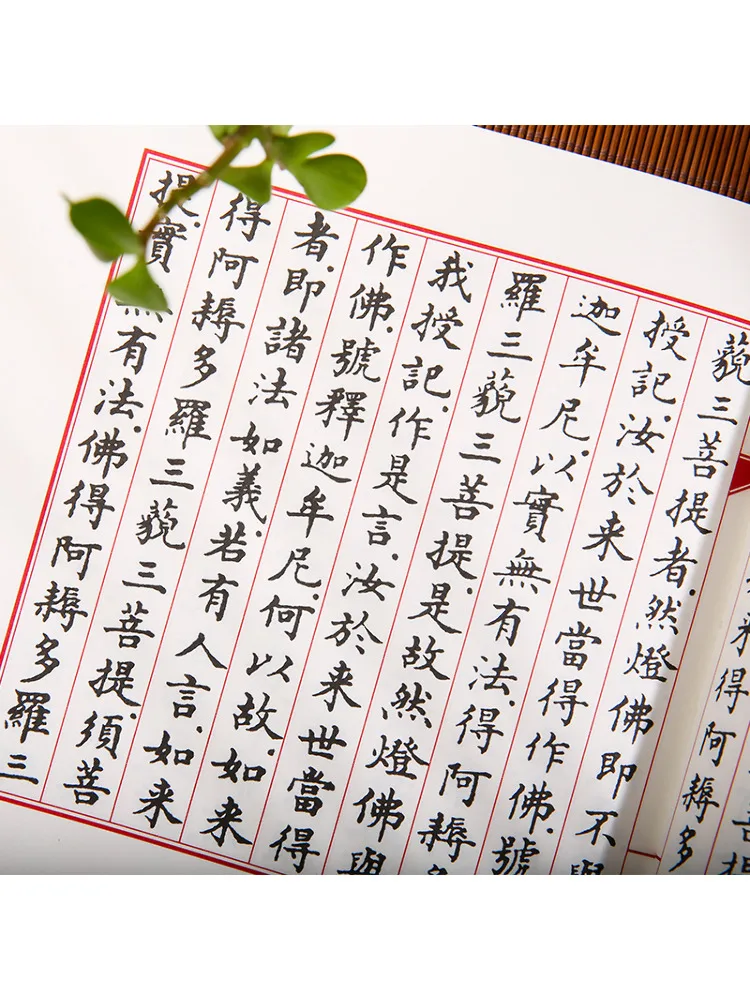 得阿耨多
藐三菩提者.然燈佛即不與
授記.汝於来世當得作佛.號
迦牟尼.以實無有法.得阿耨
羅三藐三菩提.是故然燈佛與
我授記.作是言.汝於来世當得
作佛.號釋迦牟尼.何以故.如来
者.即諸法如義.若有人言.如来
得阿耨多羅三藐三菩提.須菩
提.實無有法.佛得阿耨多羅三